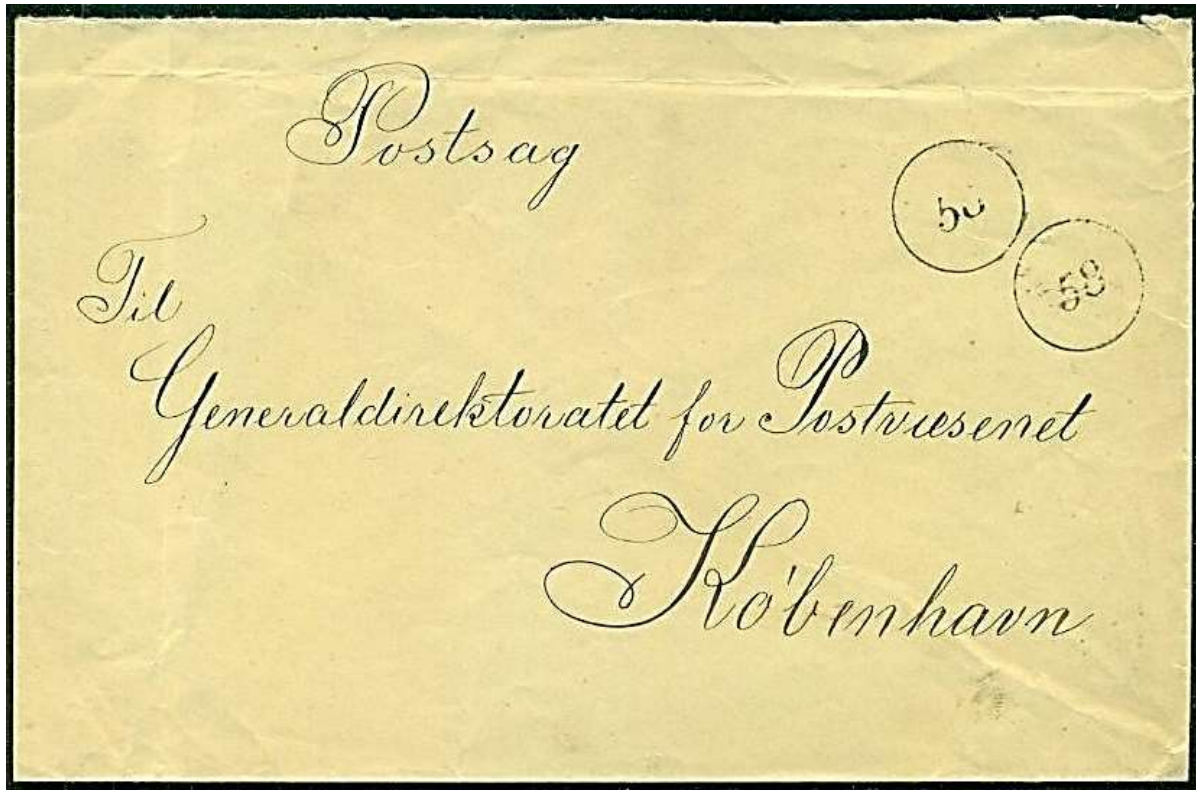 Postsag
58
Til
Generaldirektoratet for Postvæsenet
København